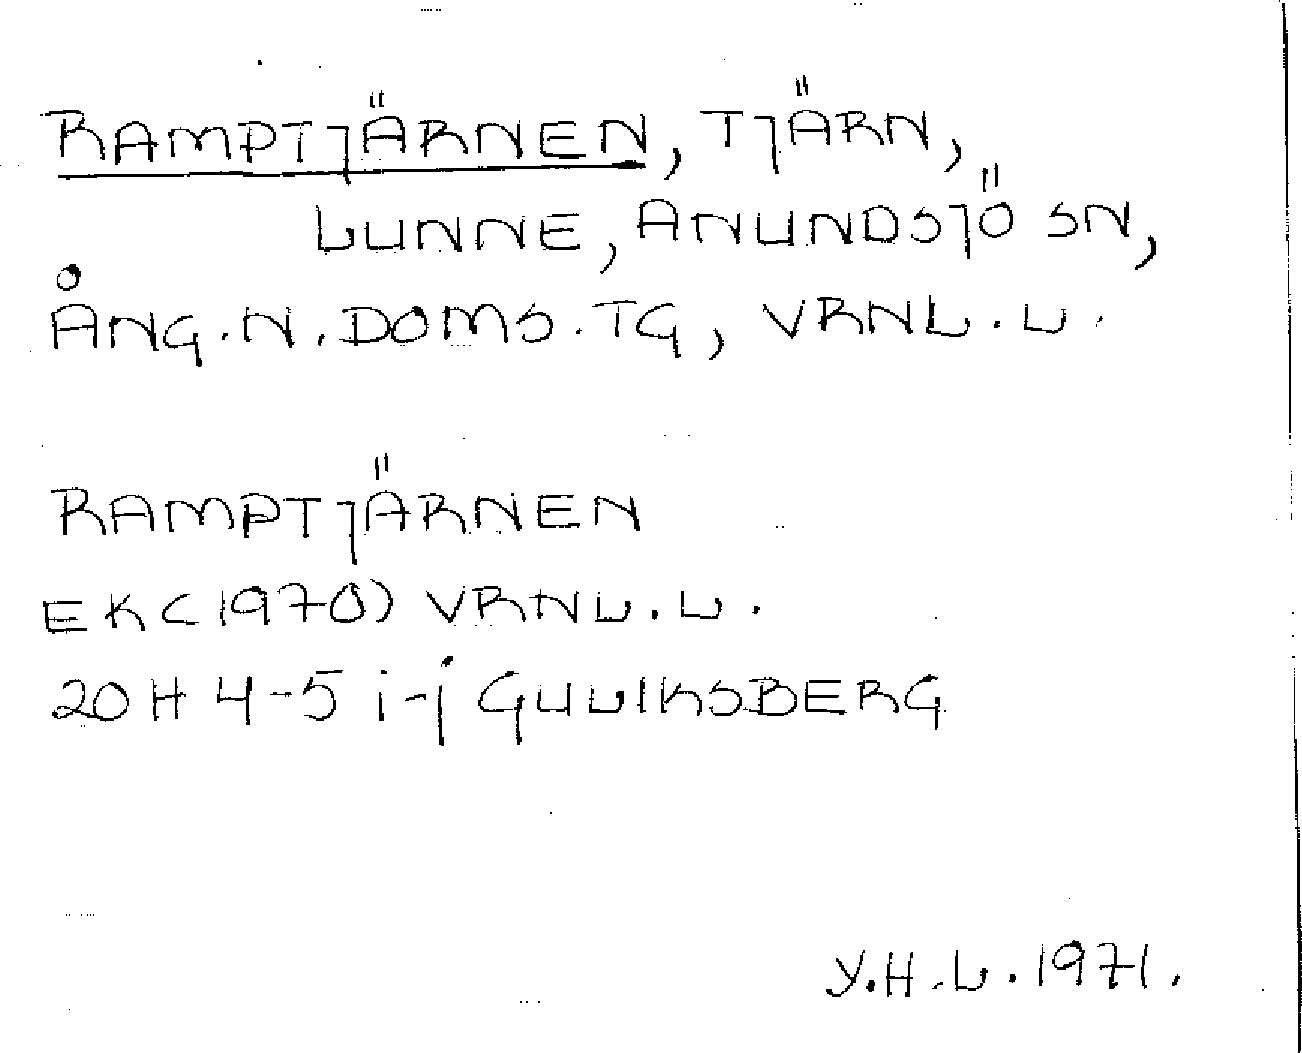 RAMPTJÄRNEN, TJÄRN,
LUNNE, ANUNDSJÖ SN,
ÅNG.N.DOMS.TG, VRNL.L.
RAMPTJÄRNEN
EK(1970) VRNL.L.
20 H 4-5 i-j GULLIKSBERG
Y.H.L. 1971.